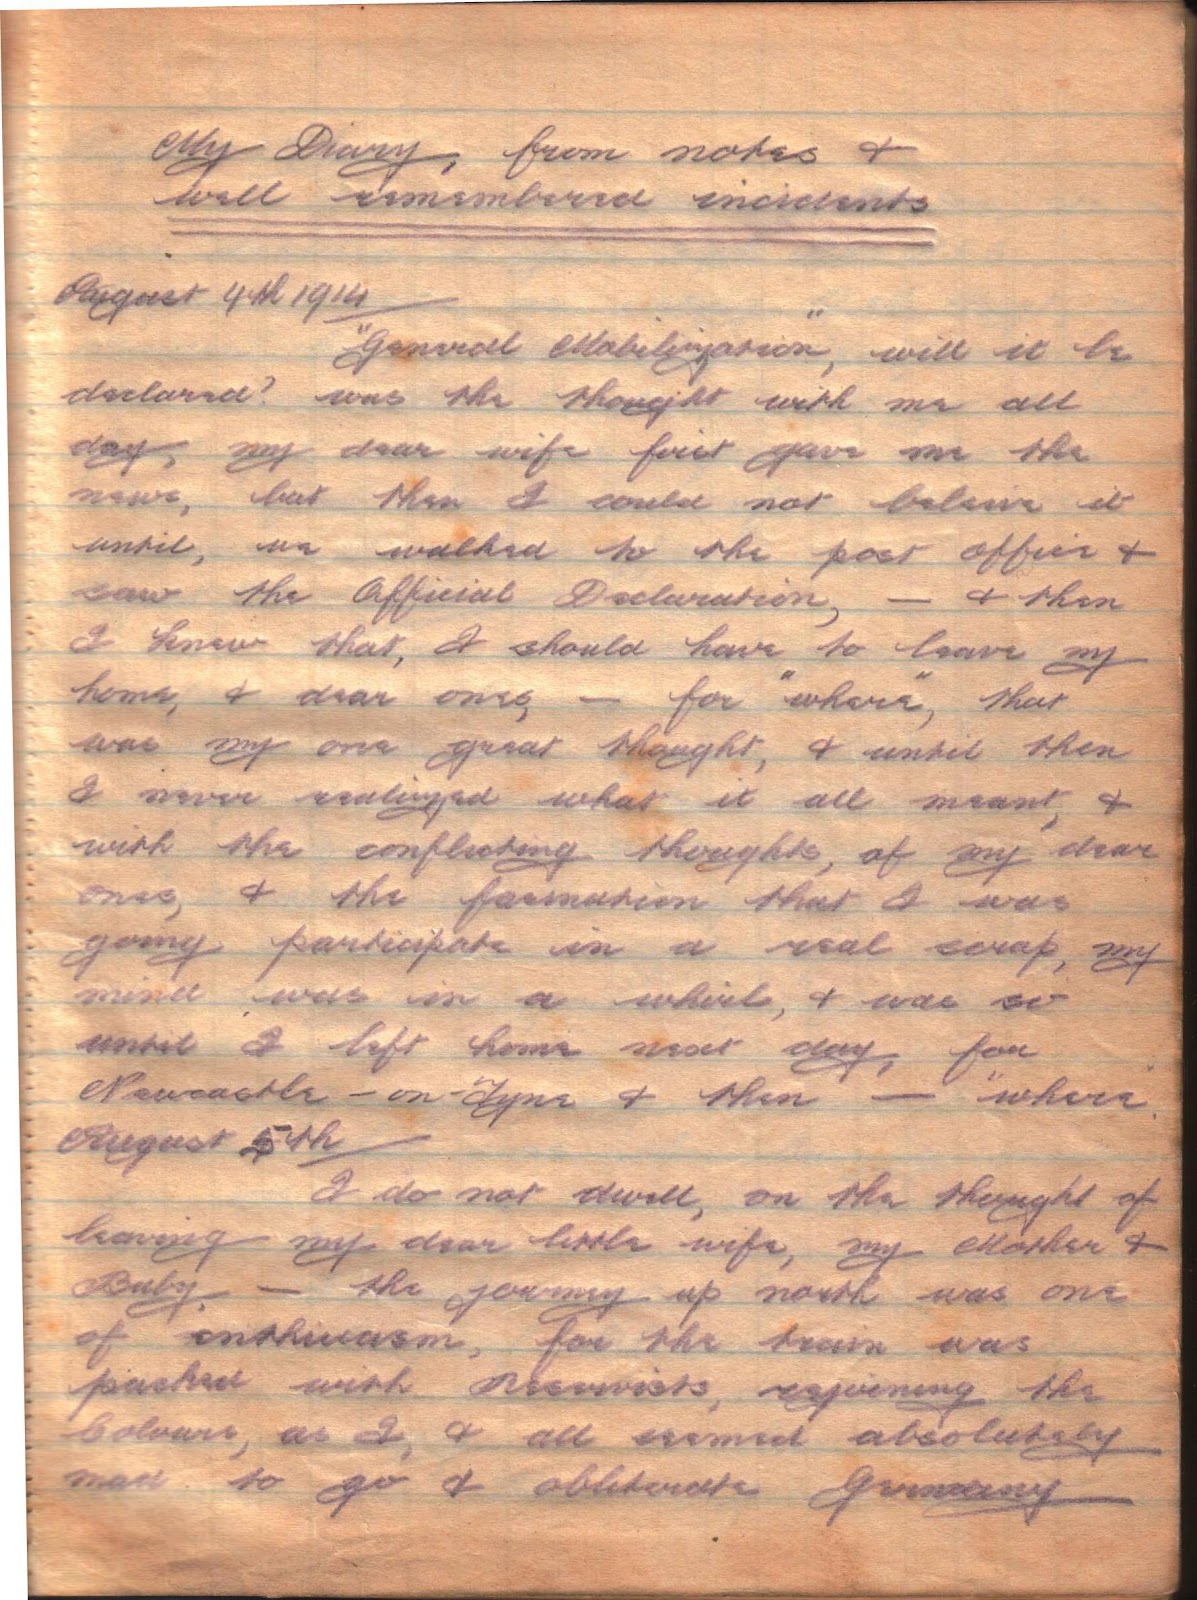 My Diary, from notes &
well remembered incidents
August 4th 1914
"General Mobilization", will it be
declared? was the thought with me all
day, my dear wife first gave me the
news, but then I could not beleive it
until, we walked to the post office &
saw the Official Declaration, — & then
I knew that, I should have to leave my
home, & dear ones, — for "where", that
was my one great thought, & until then
I never realized what it all meant, &
with the conflicting thoughts, of my dear
ones, & the fascination that I was
going participate in a real scrap, my
mind was in a whirl, & was so
until I left home next day, for
Newcastle-on-Tyne & then — "where".
August 5th
I do not dwell, on the thought of
leaving my dear little wife, my Mother &
Baby, — the journey up north was one
of enthusasm, for the train was
packed with Reservists, rejoining the
Colours, as I, & all seemed absolutely
mad to go & obliterate Germany